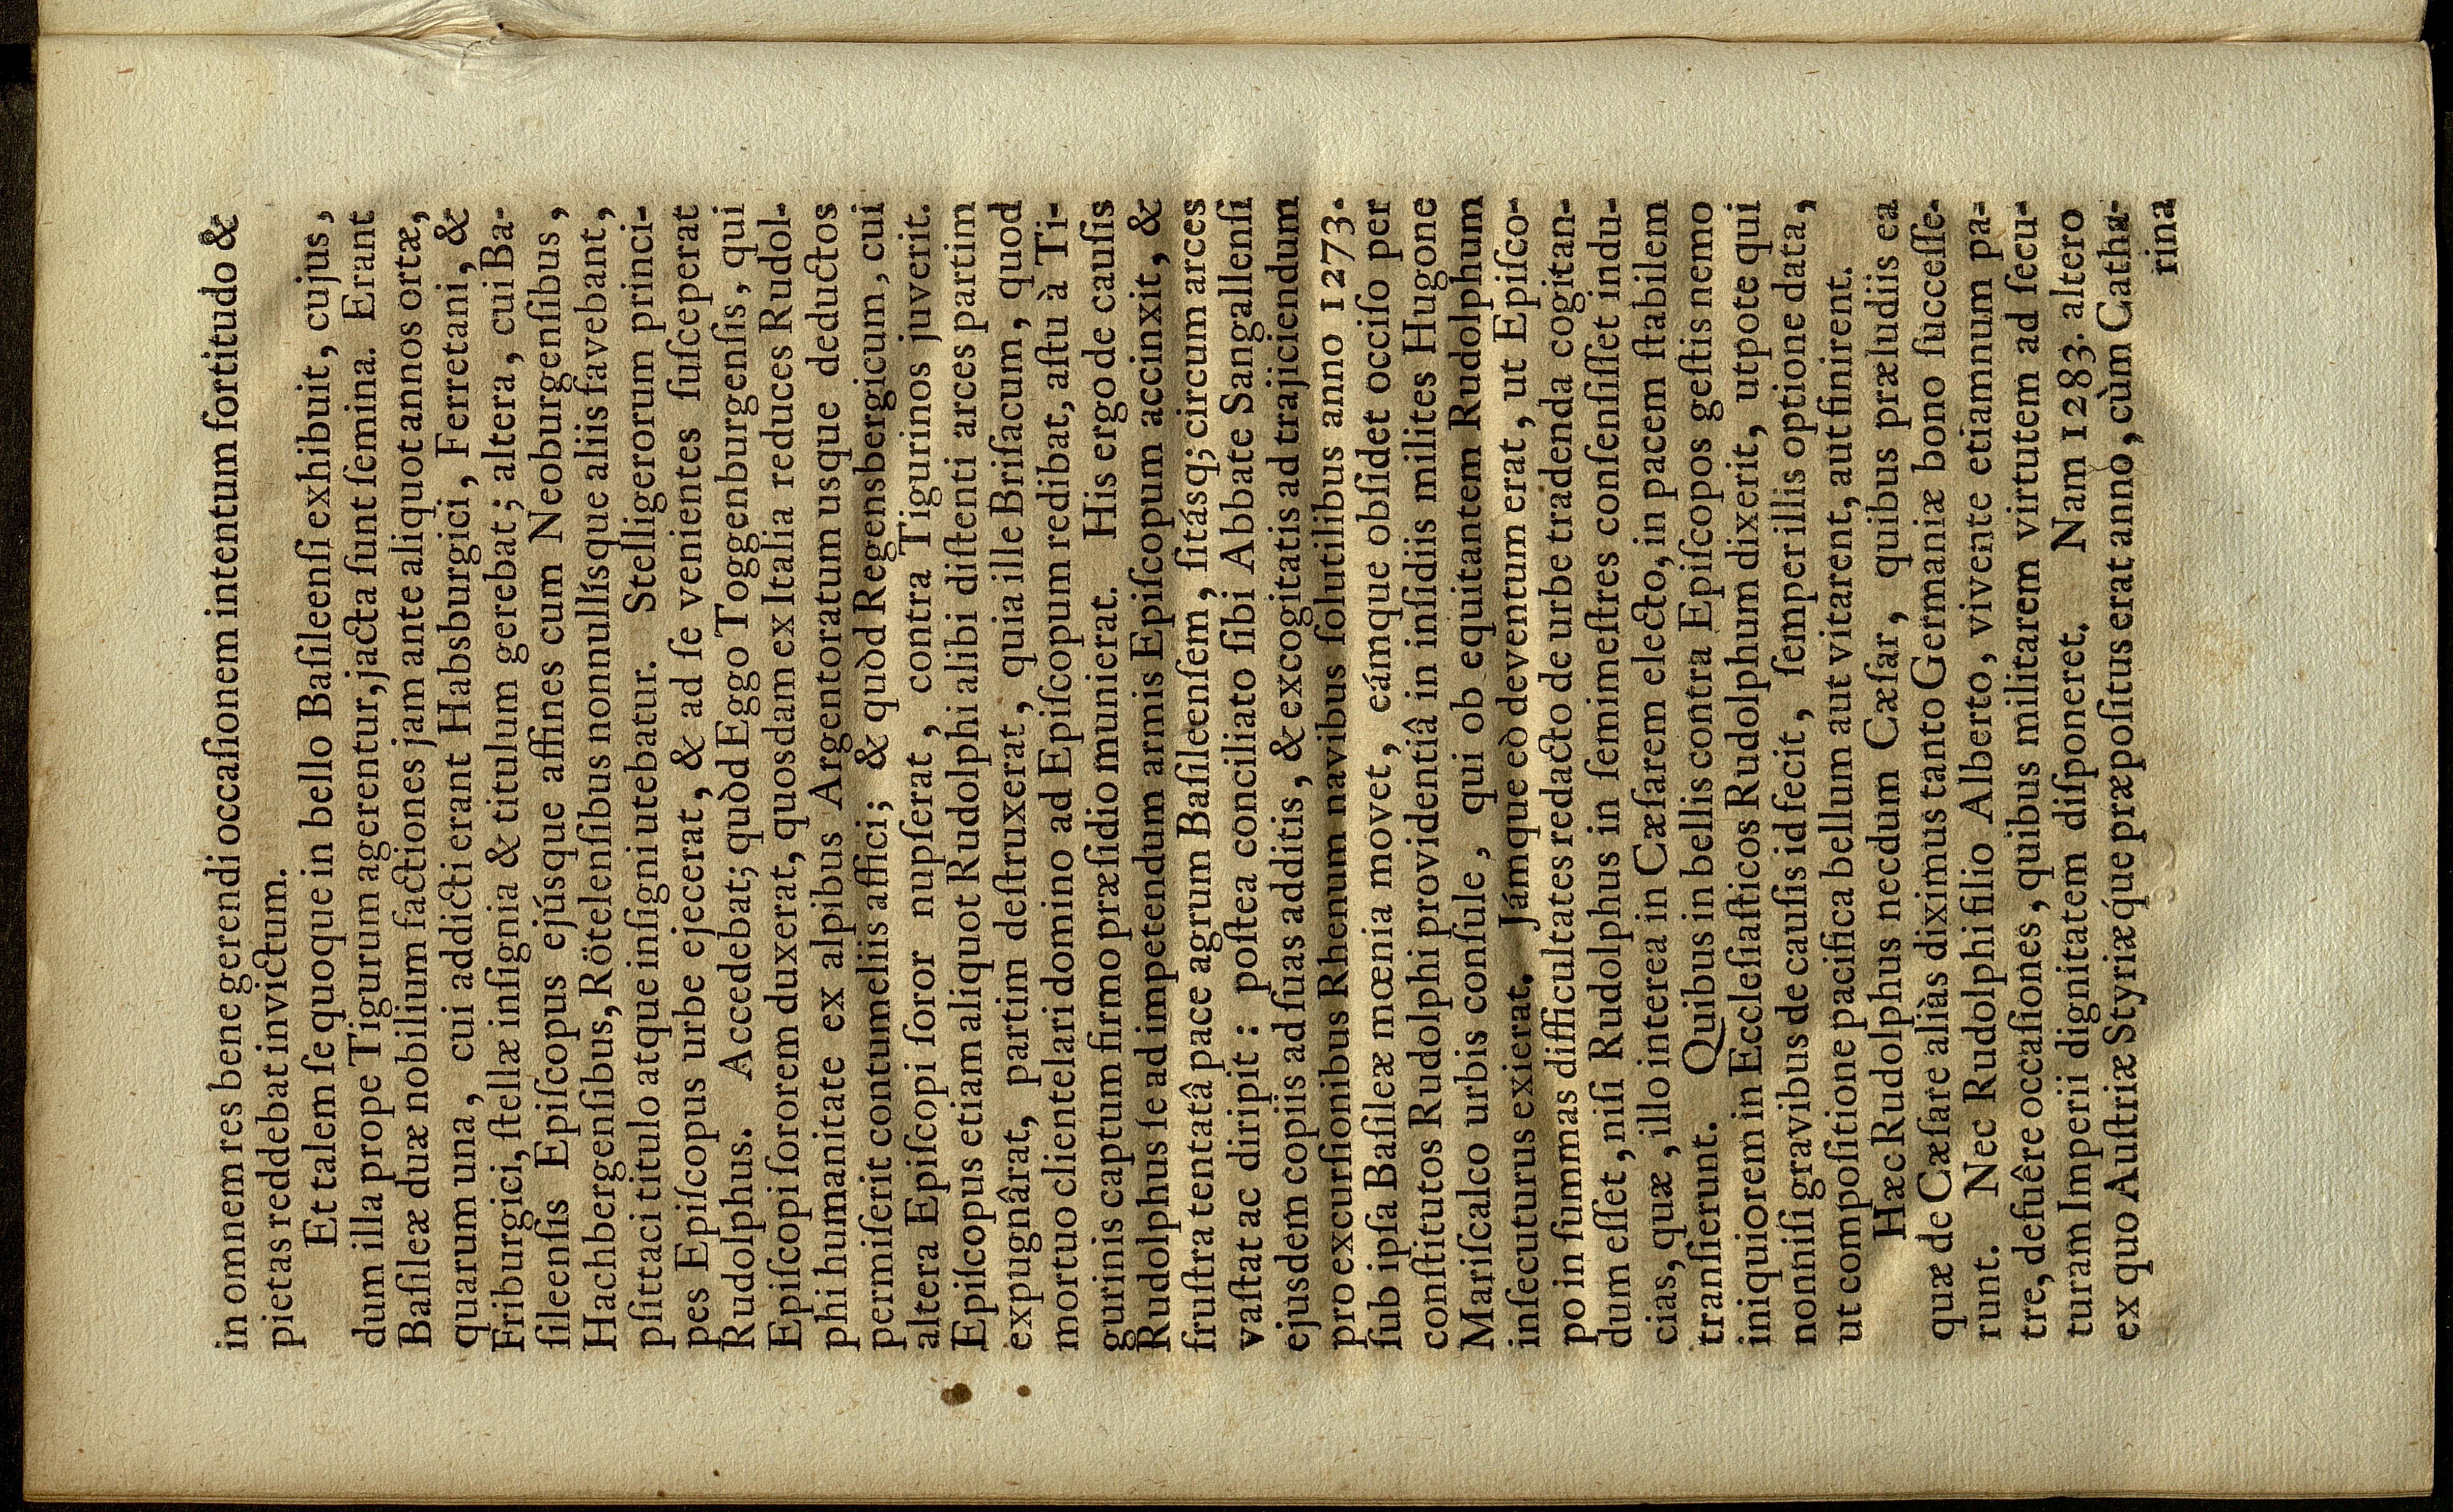 in omnem res bene gerendi occaſionem intentum fortitudo &
pietas reddebat invictum.
Et talem ſe quoque in bello Baſileenſi exhibuit, cujus,
dum illa prope Tigurum agerentur, jacta ſunt ſemina. Erant
Baſileæ duæ nobilium factiones jam ante aliquot annos ortæ,
quarum una, cui addicti erant Habsburgici, Ferretani, &
Friburgici, ſtellæ inſignia & titulum gerebat; altera, cui Ba-
ſileenſis Epiſcopus ejúsque affines cum Neoburgenſibus,
Hachbergenſibus, Rötelenſibus nonnullísque aliis favebant,
pſittaci titulo atque inſigni utebatur. Stelligerorum princi-
pes Epiſcopus urbe ejecerat, & ad ſe venientes ſuſceperat
Rudolphus. Accedebat; quòd Eggo Toggenburgenſis, qui
Epiſcopi ſororem duxerat, quosdam ex Italia reduces Rudol-
phi humanitate ex alpibus Argentoratum usque deductos
permiſerit contumeliis affici; & quòd Regensbergicum, cui
altera Epiſcopi ſoror nupſerat, contra Tigurinos juverit.
Epiſcopus etiam aliquot Rudolphi alibi diſtenti arces partim
expugnârat, partim deſtruxerat, quia ille Briſacum, quod
mortuo clientelari domino ad Epiſcopum redibat, aſtu à Ti-
gurinis captum firmo præſidio munierat. His ergo de cauſis
Rudolphus ſe ad impetendum armis Epiſcopum accinxit, &
fruſtra tentatâ pace agrum Baſileenſem, ſitásq; circum arces
vaſtat ac diripit: poſtea conciliato ſibi Abbate Sangallenſi
ejusdem copiis ad ſuas additis, & excogitatis ad trajiciendum
pro excurſionibus Rhenum navibus ſolutilibus anno 1273.
ſub ipſa Baſileæ mœnia movet, eámque obſidet occiſo per
conſtitutos Rudolphi providentiâ in inſidiis milites Hugone
Mariſcalco urbis conſule, qui ob equitantem Rudolphum
inſecuturus exierat. Jámque eò deventum erat, ut Epiſco-
po in ſummas difficultates redacto de urbe tradenda cogitan-
dum eſſet, niſi Rudolphus in ſemimeſtres conſenſiſſet indu-
cias, quæ, illo interea in Cæſarem electo, in pacem ſtabilem
tranſierunt. Quibus in bellis contra Epiſcopos geſtis nemo
iniquiorem in Eccleſiaſticos Rudolphum dixerit, utpote qui
nonniſi gravibus de cauſis id fecit, ſemper illis optione data,
ut compoſitione pacifica bellum aut vitarent, aut finirent.
Hæc Rudolphus necdum Cæſar, quibus præludiis ea
quæ de Cæſare aliàs diximus tanto Germaniæ bono ſucceſſe-
runt. Nec Rudolphi filio Alberto, vivente etiamnum pa-
tre, defuêre occaſiones, quibus militarem virtutem ad ſecu-
turam Imperii dignitatem diſponeret. Nam 1283. altero
ex quo Auſtriæ Styriæq́ue præpoſitus erat anno, cùm Catha-
rina